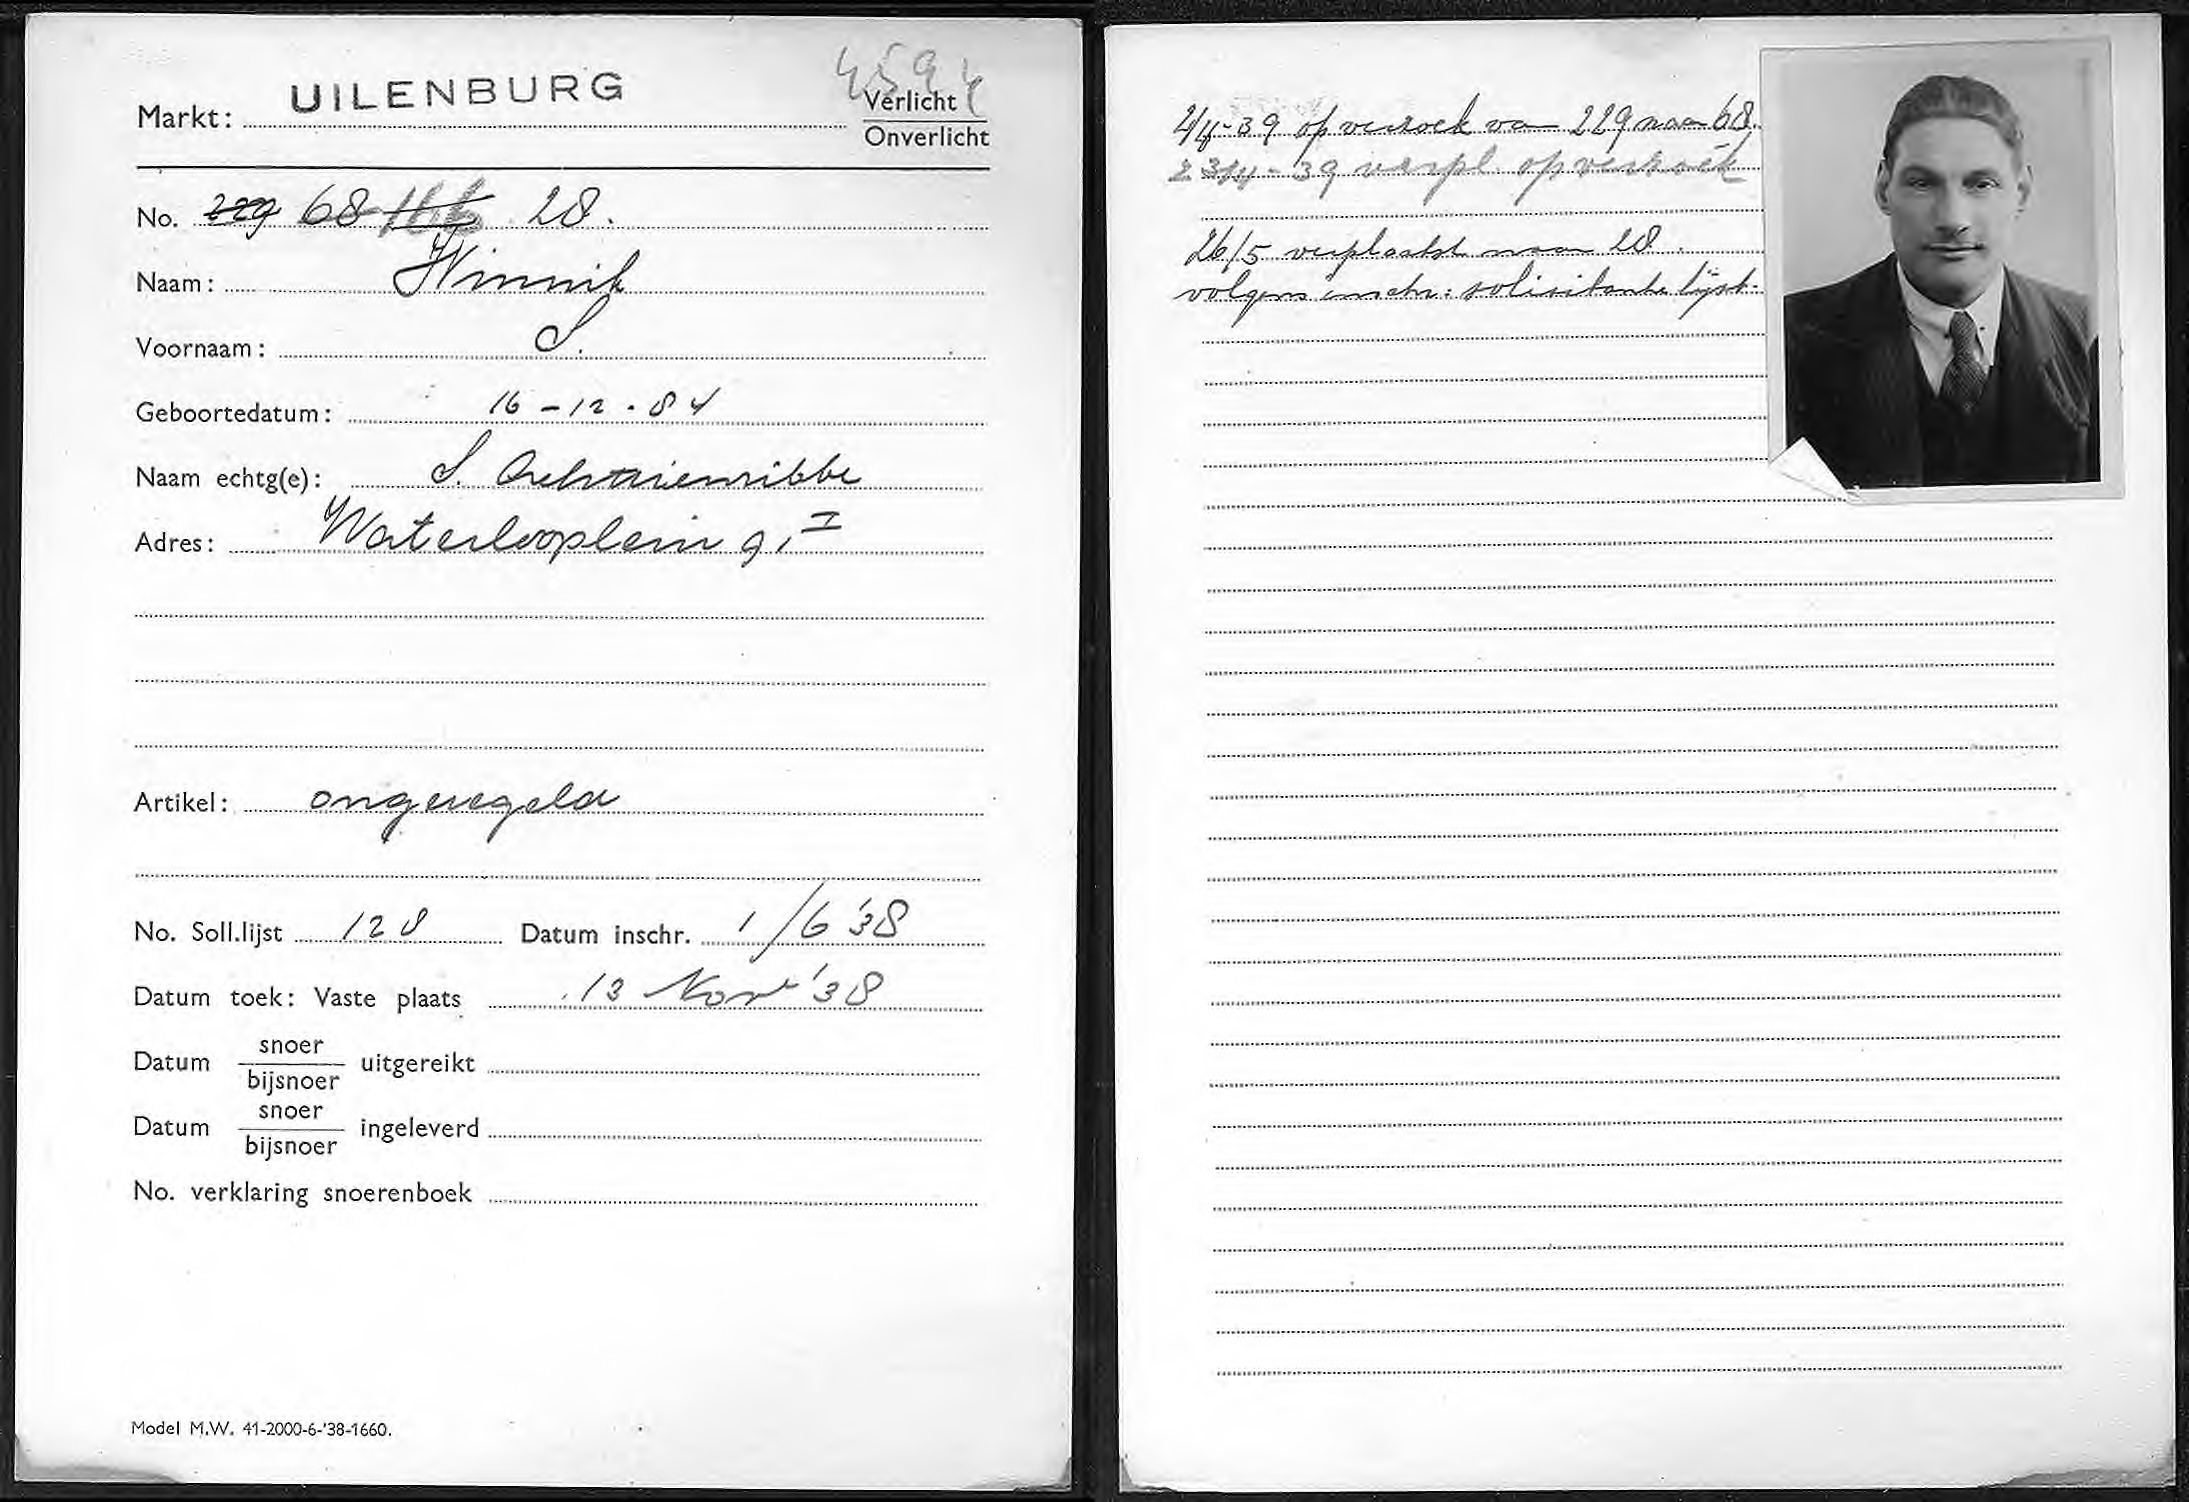 4594
Markt: UILENBURG
Verlicht
Onverlicht
No. 229 68 28.
Naam: Winnik
Voornaam: S.
Geboortedatum: 16-12-84
Naam echtg(e): S. Ossendrijver
Adres: Waterlooplein 9, I
Artikel: ongeregeld
No. Soll.lijst 128 Datum inschr. 1/6 '38
Datum toek: Vaste plaats 13 Nov '38
Datum snoer uitgereikt
bijsnoer
Datum snoer ingeleverd
bijsnoer
No. verklaring snoerenboek
Model M.W. 41-2000-6-'38-1660.
4/4-39 op verzoek van 229 naar 68.
23/4-39 verpl. op verzoek
26/5 verplaatst naar 28.
volgens inschr: solicitante lijst.